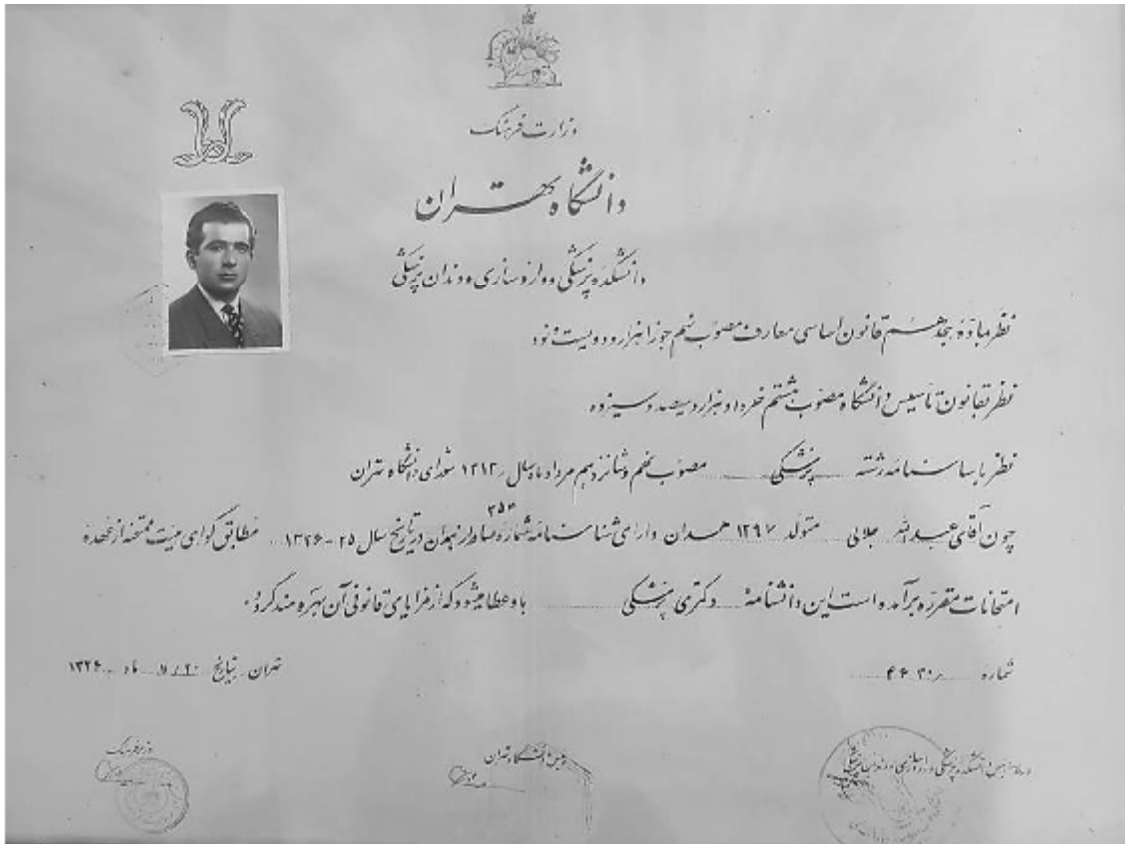 وزارت فرهنگ
دانشگاه تهران
دانشکده پزشکی و داروسازی و دندان پزشکی
نظر بماده هیجدهم قانون اساسی معارف مصوب نهم جوزا هزار و دویست و نود
نظر بقانون تأسیس دانشگاه مصوب هشتم خرداد هزار و سیصد و سیزده
نظر باساسنامه رشته پزشکی مصوب نهم و شانزدهم مرداد ماه سال ۱۳۱۳ شورای دانشگاه تهران
چون آقای عبدالله جلالی متولد ۱۲۹۷ همدان دارای شناسنامه شماره ۲۵۳ صادر از همدان در تاریخ سال ۲۵-۱۳۲۶ مطابق گواهی هیئت ممتحنه از عهده
امتحانات مقرره برآمده است این دانشنامه دکتری پزشکی باو عطا میشود که از مزایای قانونی آن بهره مند گردد.
شماره
تهران بتاریخ ۲۰ ماه ۱۳۲۶
رئیس دانشکده پزشکی و داروسازی و دندان پزشکی
رئیس دانشگاه تهران
وزیر فرهنگ